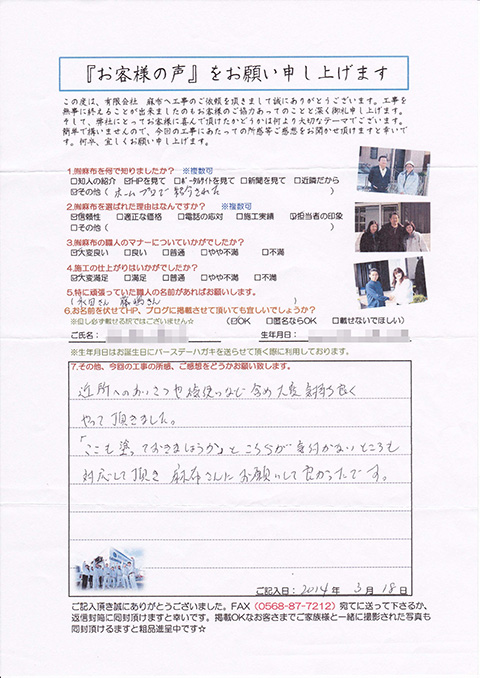 『お客様の声』をお願い申し上げます
この度は、有限会社 麻布へ工事のご依頼を頂きまして誠にありがとうございます。工事を
無事に終えることが出来ましたのもお客様のご協力あってのことと深く御礼申し上げます。
そして、弊社にとってお客様に喜んで頂けたかどうかは何より大切なテーマでございます。
簡単で構いませんので、今回の工事にあたっての所感等ご感想をお聞かせ頂けますと幸いで
す。何卒、宜しくお願い申し上げます。
1.㈲麻布を何で知りましたか? ※複数可
□知人の紹介 ☑HPを見て □ポータルサイトを見て □新聞を見て □近隣だから
☑その他( ホームプロで紹介された )
2.㈲麻布を選ばれた理由はなんですか? ※複数可
☑信頼性 □適正な価格 □電話の応対 □施工実績 ☑担当者の印象
□その他( )
3.㈲麻布の職人のマナーについていかがでしたか?
☑大変良い □良い □普通 □やや不満 □不満
4.施工の仕上がりはいかがでしたか?
☑大変満足 □満足 □普通 □やや不満 □不満
5.特に頑張っていた職人の名前があればお願いします。
( 永田さん 藤 さん )
6.お名前を伏せてHP、ブログに掲載させて頂いても宜しいでしょうか?
※但し必ず載せる訳ではございません☆ (☑OK □匿名ならOK □載せないでほしい)
ご氏名: 生年月日:
※生年月日はお誕生日にバースデーハガキを送らせて頂く際に利用しております。
7.その他、今回の工事の所感、ご感想をどうかお願い致します。
近所へのあいさつや気使いなど含め大変気持ち良く
やって頂きました。
「ここも塗っておきましょうか」とこちらが気付かないところも
対応して頂き麻布さんにお願いして良かったです。
ご記入日:2014年 3月 18日
ご記入頂き誠にありがとうございました。FAX(0568-87-7212)宛てに送って下さるか、
返信封筒に同封頂けますと幸いです。掲載OKなお客さまでご家族様と一緒に撮影された写真も
同封頂けるますと粗品進呈中です☆